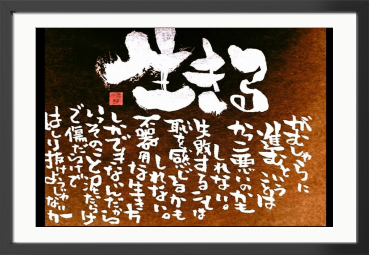 生きる
がむしゃらに
進むということは
かっこ悪いのかも
しれない。
失敗することは
恥を感じるかも
しれない。
不器用な生き方
しかできないんだから
いっそのこと泥だらけ
で傷だらけで
はしり抜けて